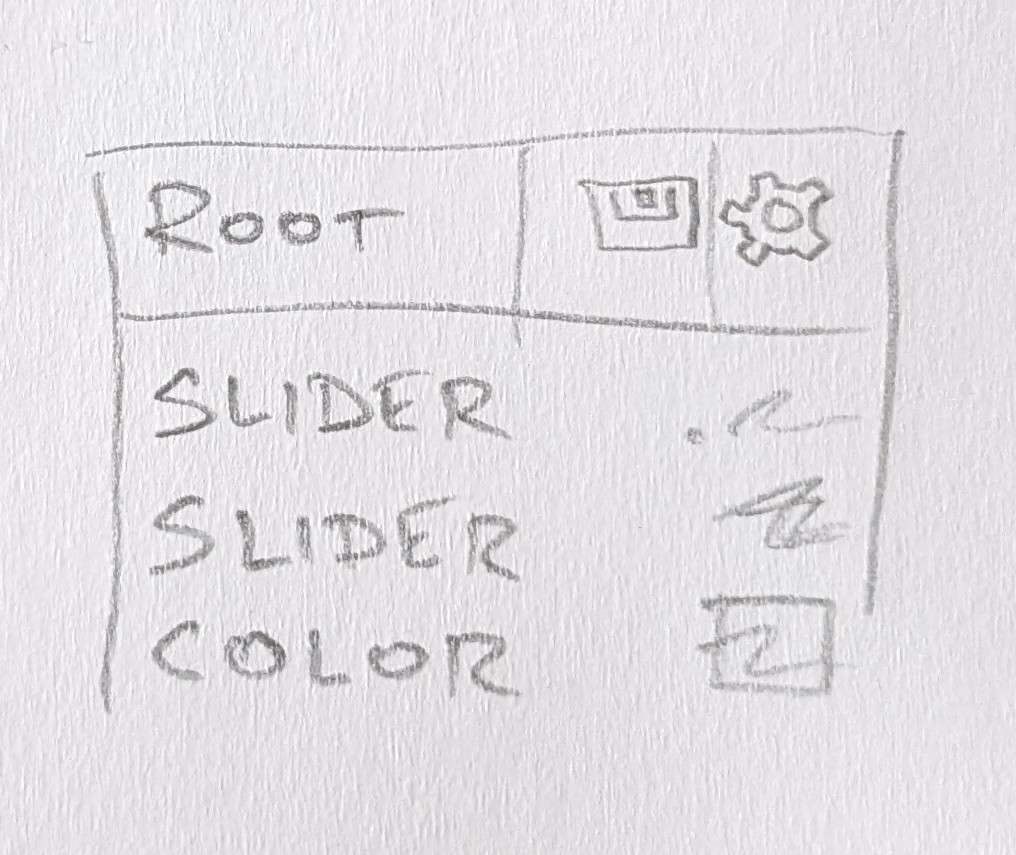 ROOT
SLIDER
SLIDER
COLOR